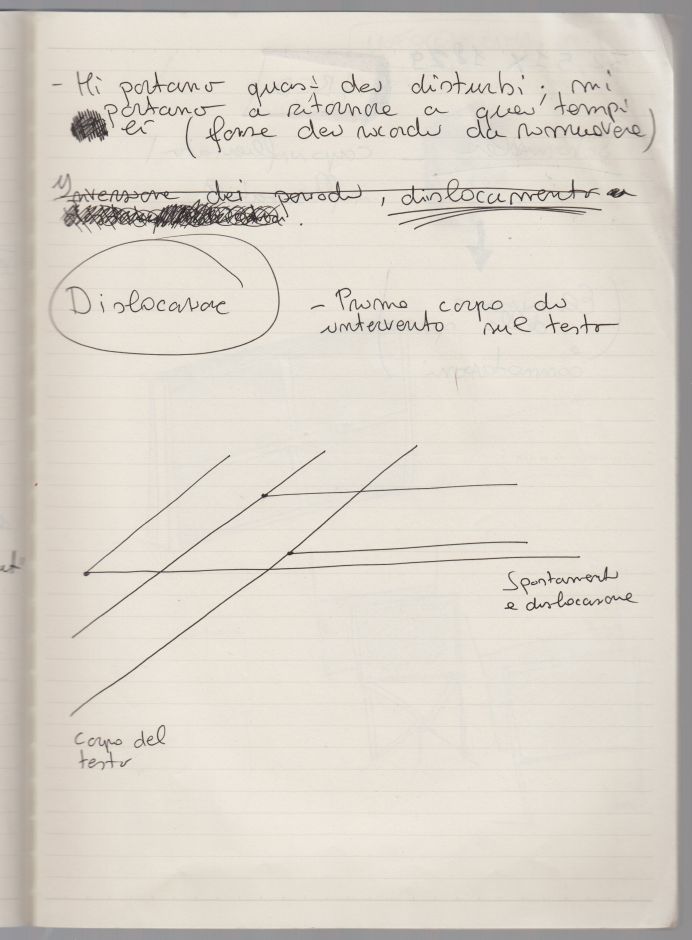 - Mi portano quasi dei disturbi, mi
portano a ritornare a quei tempi
lì (forse dei ricordi da rimuovere)
Inversione dei periodi, dislocamento
Dislocazione
- Primo corpo di
intervento sul testo
Spostamenti
e dislocazione
Corpo del
testo